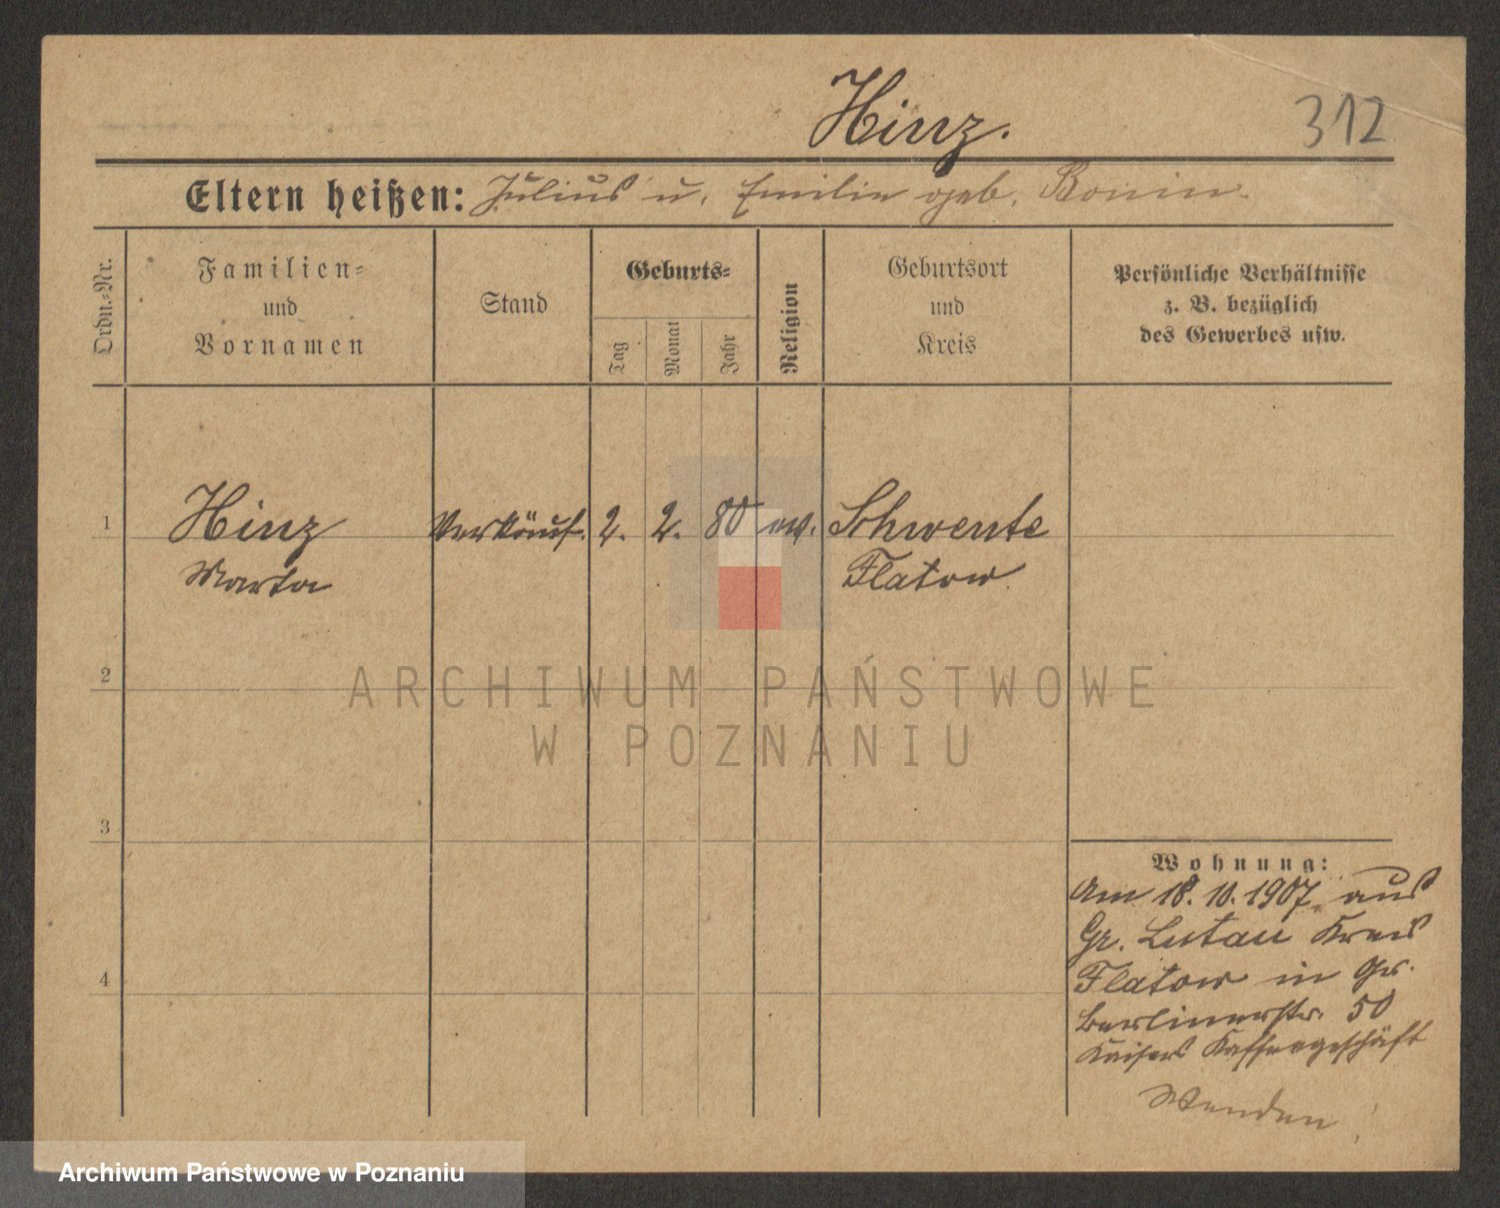 Hinz.
312
Eltern heißen: Julius u. Emilie geb. Bonin.
Ordn.-Nr.
Familien-
und
Vornamen
Stand
Geburts-
Tag
Monat
Jahr
Religion
Geburtsort
und
Kreis
Persönliche Verhältnisse
z. B. bezüglich
des Gewerbes usw.
1
Hinz
Verkäuf.
2.
2.
80
ev.
Schwente
Marta
Flatow
2
ARCHIWUM PAŃSTWOWE
W POZNANIU
3
Wohnung:
Am 18. 10. 1907 aus
Gr. Lutau Kreis
4
Flatow in Gr.
Berlinerstr. 50
Kaisers Kaffeegeschäft
Wenden!
Archiwum Państwowe w Poznaniu